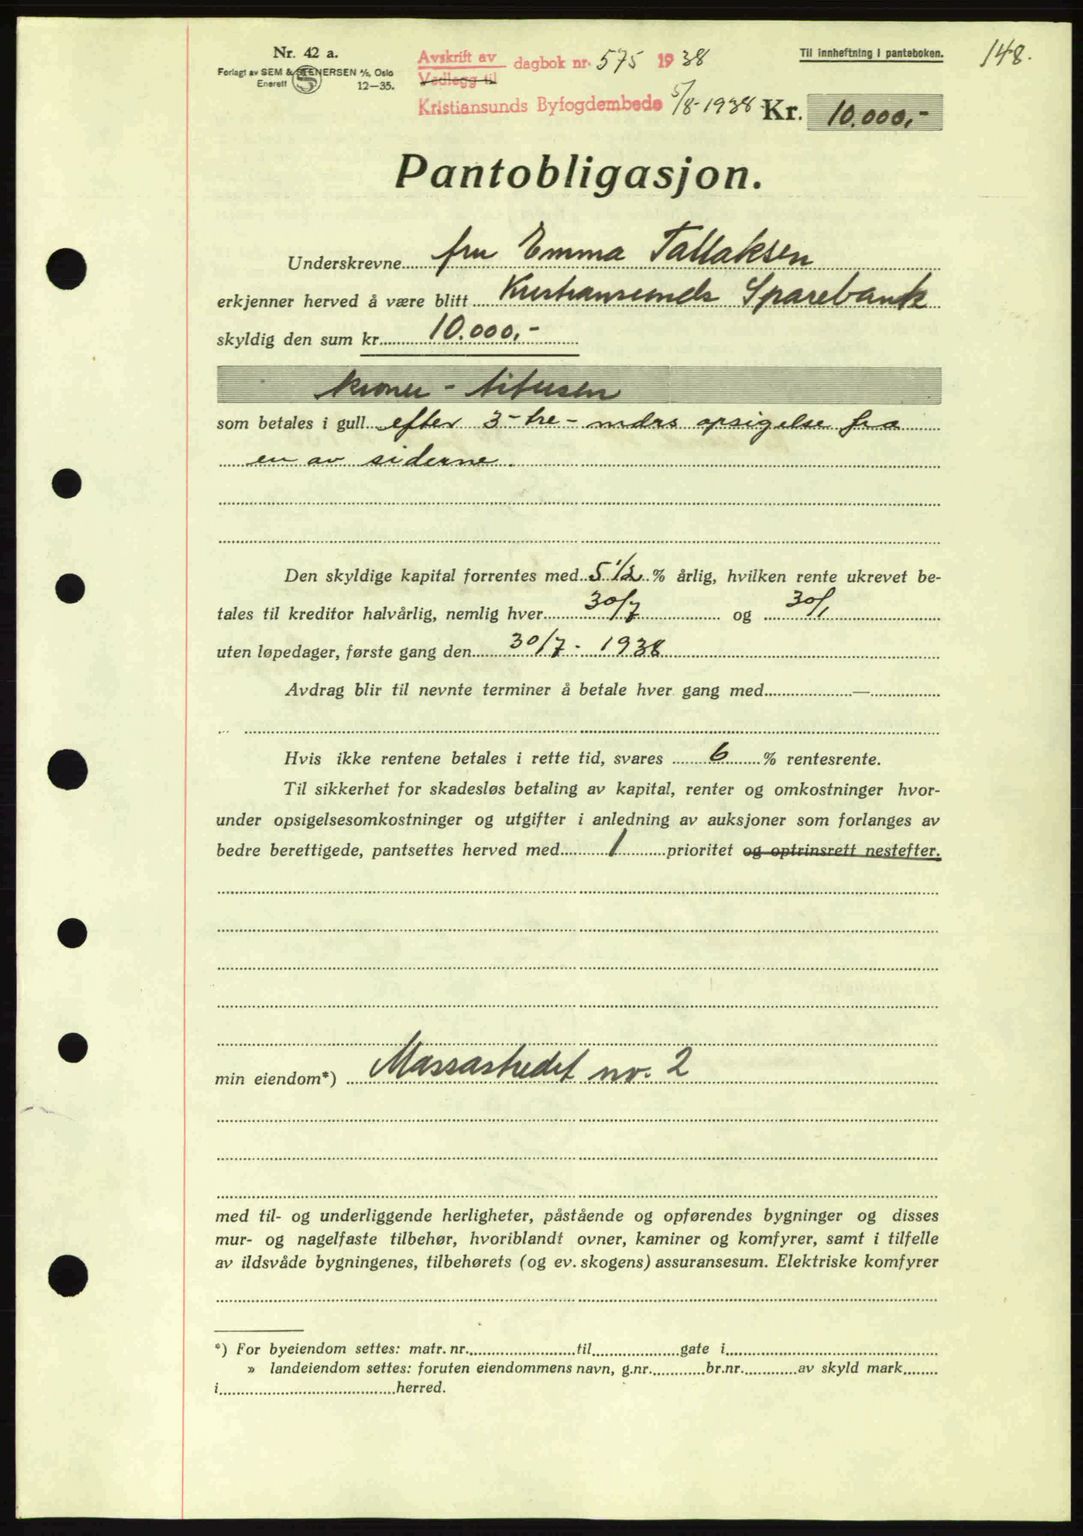 148.
Nr. 42 a.
Forlagt av SEM & STENERSEN A/S, Oslo
Enerett 12—35.
Avskrift av
Vedlegg til
dagbok nr. 575 1938
Kristiansunds Byfogdembede 5/8-1938
Til innheftning i panteboken.
Kr. 10.000,-
Pantobligasjon.
Underskrevne fru Emma Tallaksen
erkjenner herved å være blitt Kristiansunds Sparebank
skyldig den sum kr. 10.000,-
kroner - titusen
som betales i gull efter 3-tre- mdrs opsigelse fra
en av siderne.
Den skyldige kapital forrentes med 5 1/2 % årlig, hvilken rente ukrevet be-
tales til kreditor halvårlig, nemlig hver 30/7 og 30/1
uten løpedager, første gang den 30/7 - 1938
Avdrag blir til nevnte terminer å betale hver gang med —
Hvis ikke rentene betales i rette tid, svares 6 % rentesrente.
Til sikkerhet for skadesløs betaling av kapital, renter og omkostninger hvor-
under opsigelsesomkostninger og utgifter i anledning av auksjoner som forlanges av
bedre berettigede, pantsettes herved med 1 prioritet og optrinsrett nestefter.
min eiendom*) nr. 2
med til- og underliggende herligheter, påstående og opførendes bygninger og disses
mur- og nagelfaste tilbehør, hvoriblandt ovner, kaminer og komfyrer, samt i tilfelle
av ildsvåde bygningenes, tilbehørets (og ev. skogens) assuransesum. Elektriske komfyrer
*) For byeiendom settes: matr. nr. til gate i
» landeiendom settes: foruten eiendommens navn, g.nr. br.nr. av skyld mark
i herred.